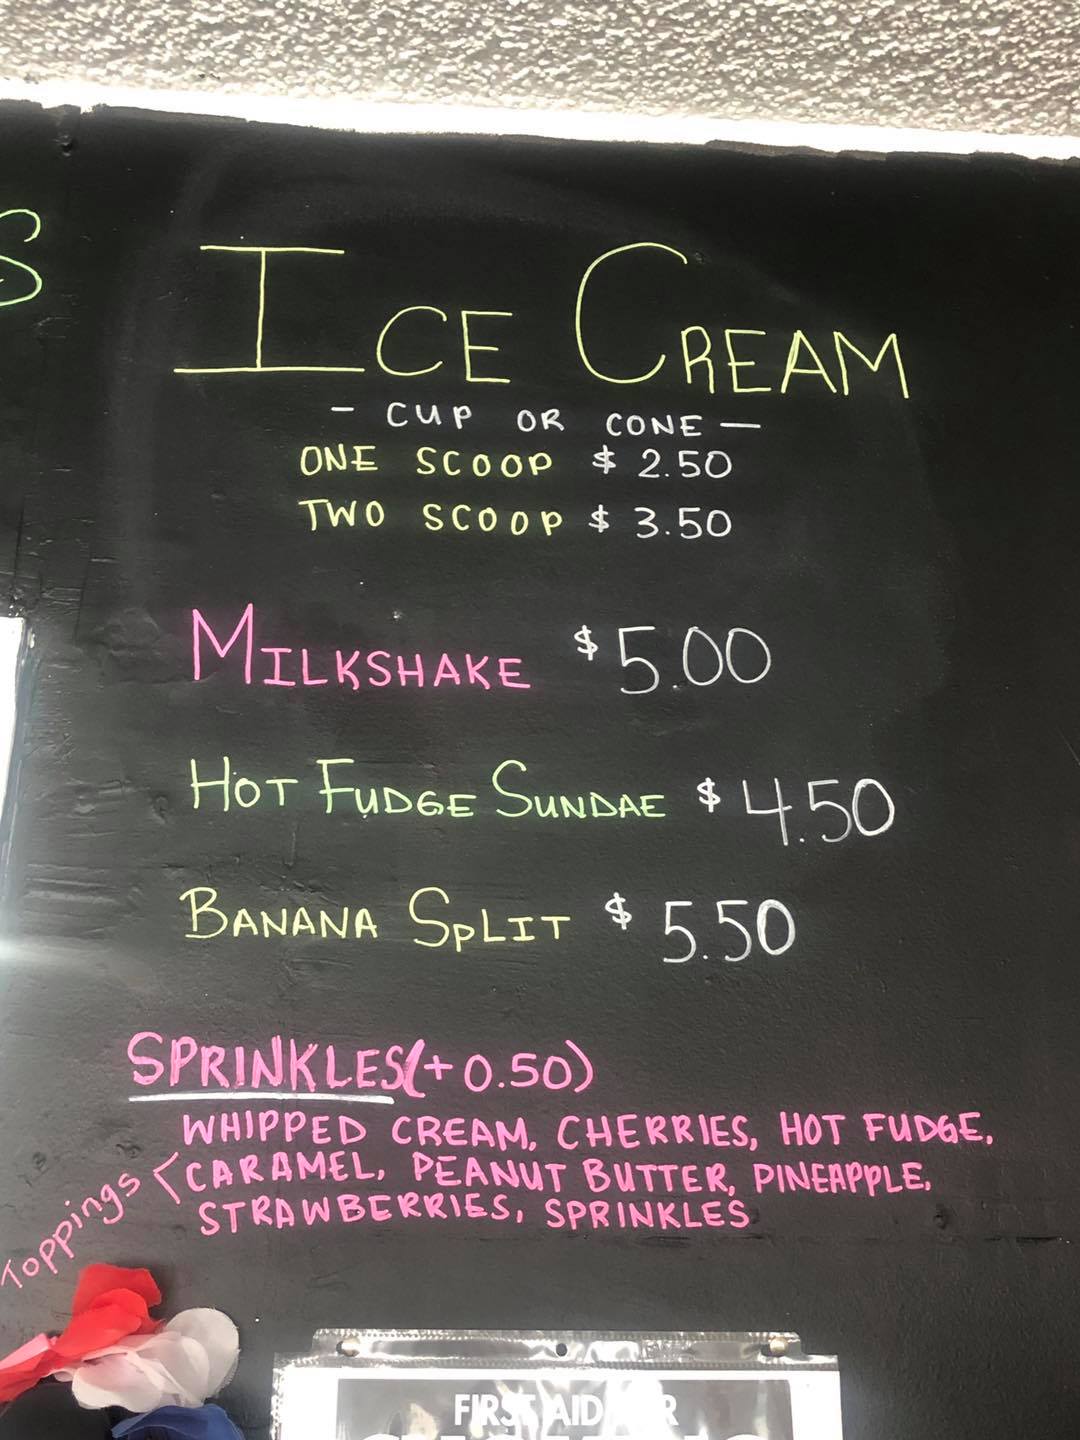 S
ICE CREAM
- CUP OR CONE -
ONE SCOOP $ 2.50
TWO SCOOP $ 3.50
MILKSHAKE $5.00
HOT FUDGE SUNDAE $ 4.50
BANANA SPLIT $ 5.50
SPRINKLES (+0.50)
WHIPPED CREAM, CHERRIES, HOT FUDGE,
CARAMEL, PEANUT BUTTER, PINEAPPLE,
STRAWBERRIES, SPRINKLES
Toppings
FIRST AID FOR